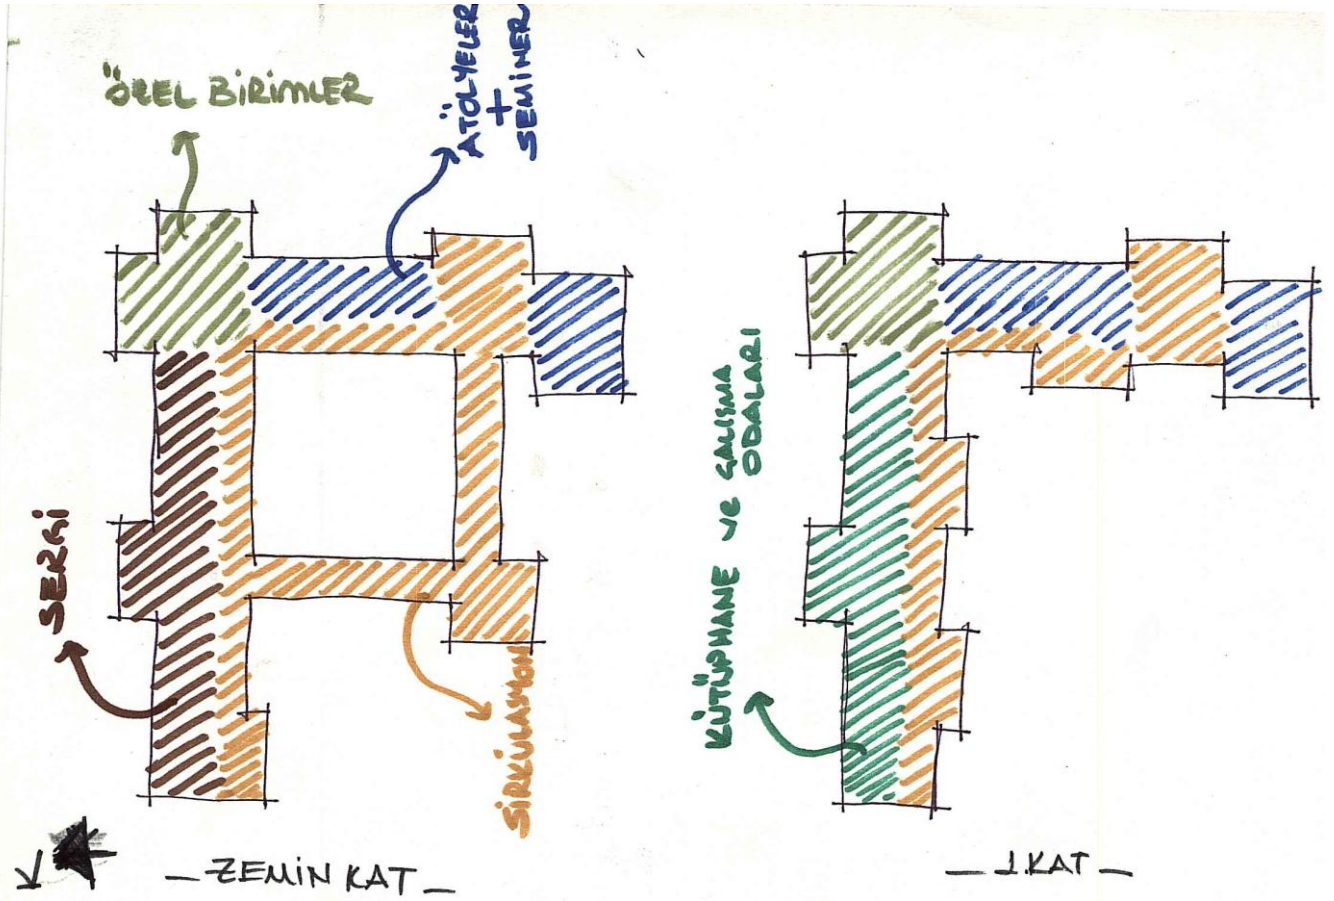 ÖZEL BİRİMLER
ATÖLYELER
+
SEMİNER
SERGİ
SİRKÜLASYON
KÜTÜPHANE ve ÇALIŞMA
ODALARI
_ ZEMİN KAT _
_ 1.KAT _